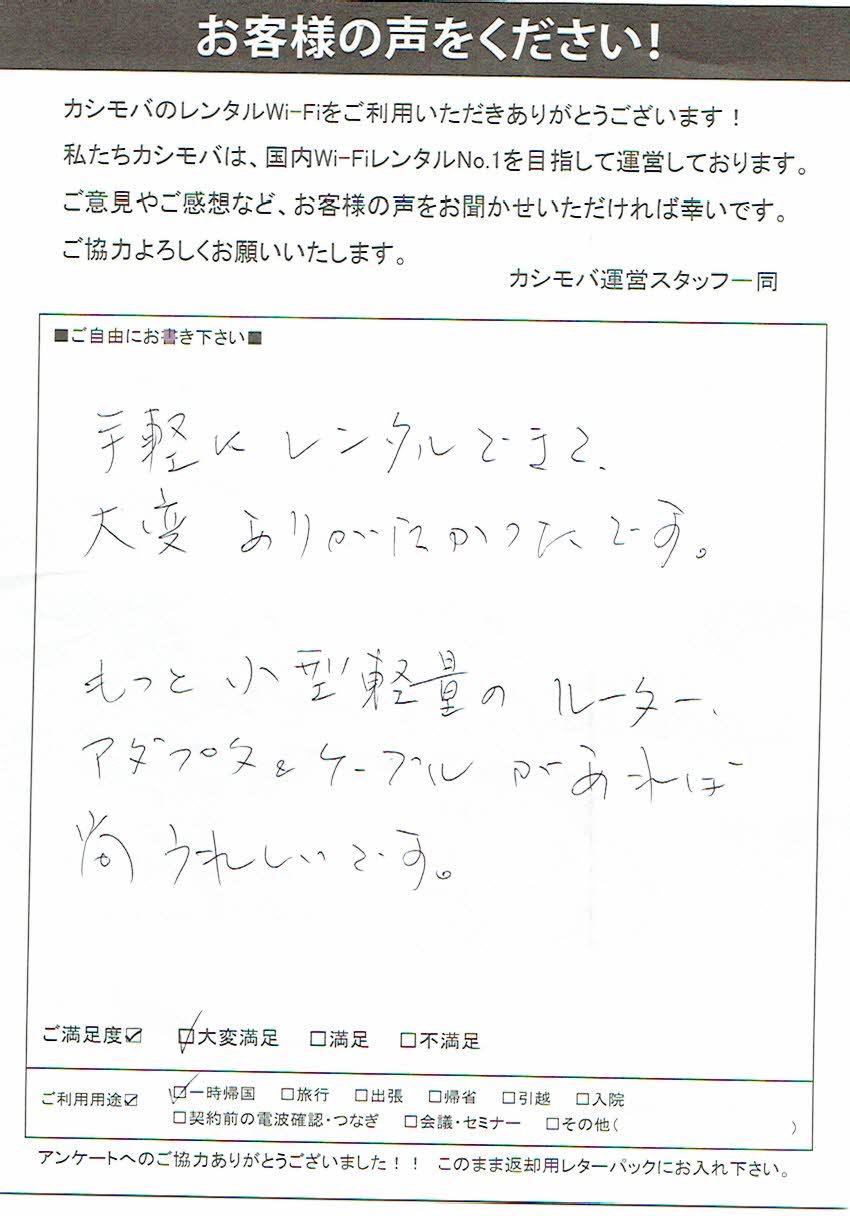 お客様の声をください!
カシモバのレンタルWi-Fiをご利用いただきありがとうございます!
私たちカシモバは、国内Wi-FiレンタルNo.1を目指して運営しております。
ご意見やご感想など、お客様の声をお聞かせいただければ幸いです。
ご協力よろしくお願いいたします。
カシモバ運営スタッフ一同
■ご自由にお書き下さい■
手軽にレンタルできて、
大変ありがたかったです。
もっと小型軽量のルーター、
アダプタ&ケーブルがあれば
尚うれしいです。
ご満足度☑ ☑大変満足 □満足 □不満足
ご利用用途☑ ☑一時帰国 □旅行 □出張 □帰省 □引越 □入院
□契約前の電波確認・つなぎ □会議・セミナー □その他( )
アンケートへのご協力ありがとうございました!! このまま返却用レターパックにお入れ下さい。